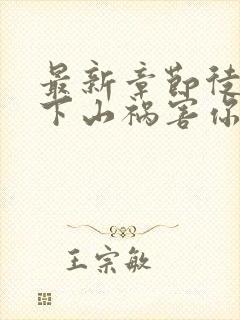 最新章节徒
下山祸害你
王宗敏